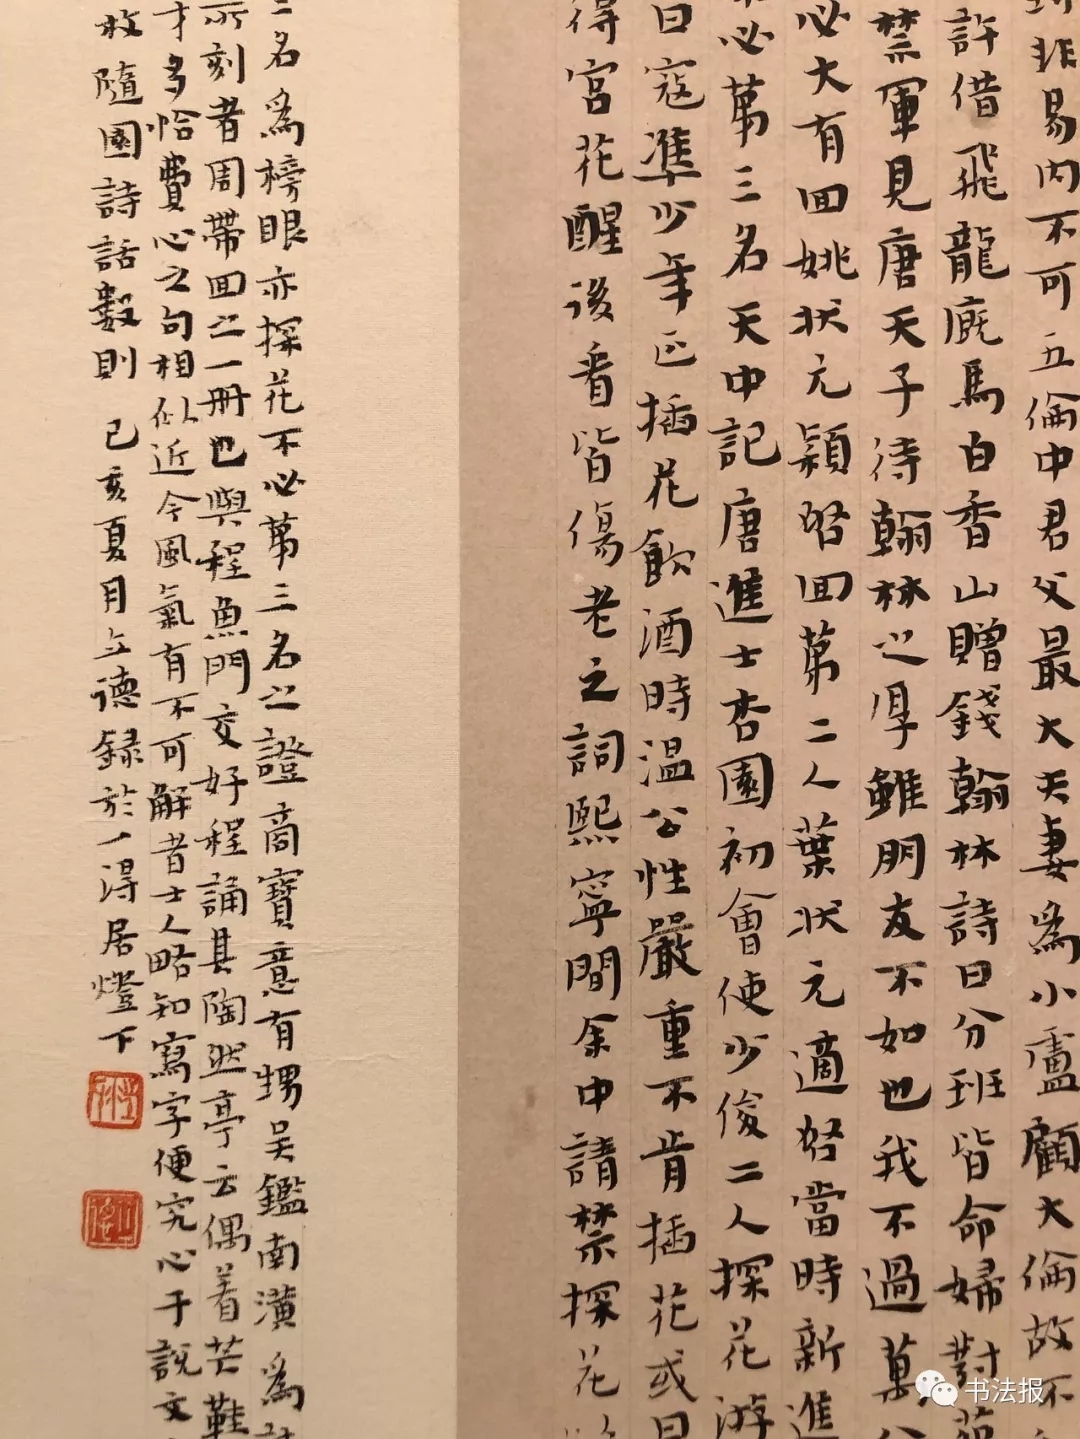 非易內不可五倫中君父最大夫妻為小盧顧大倫故不
許借飛龍廐馬白香山贈錢翰林詩曰分班皆命婦對
禁軍見唐天子待翰林之厚雖朋友不如也我不過萬
必大有回姚狀元穎啓回第二人葉狀元適啓當時新進
必第三名天中記唐進士杏園初會使少俊二人探花游
曰寇準少年正插花飲酒時溫公性嚴重不肯插花或曰
得宮花醒後看皆傷老之詞熙寧間余中請禁探花以
二名為榜眼亦探花不必第三名之證商寶意有甥吳鑑南潢為
所刻者周帶回之一冊也與程魚門交好程誦其陶然亭云偶着芒鞋
才多恰費心之句相似近今風氣有不可解者士人略知寫字便究心于說文
枚隨園詩話數則 己亥夏月立德録於一得居燈下
书法报